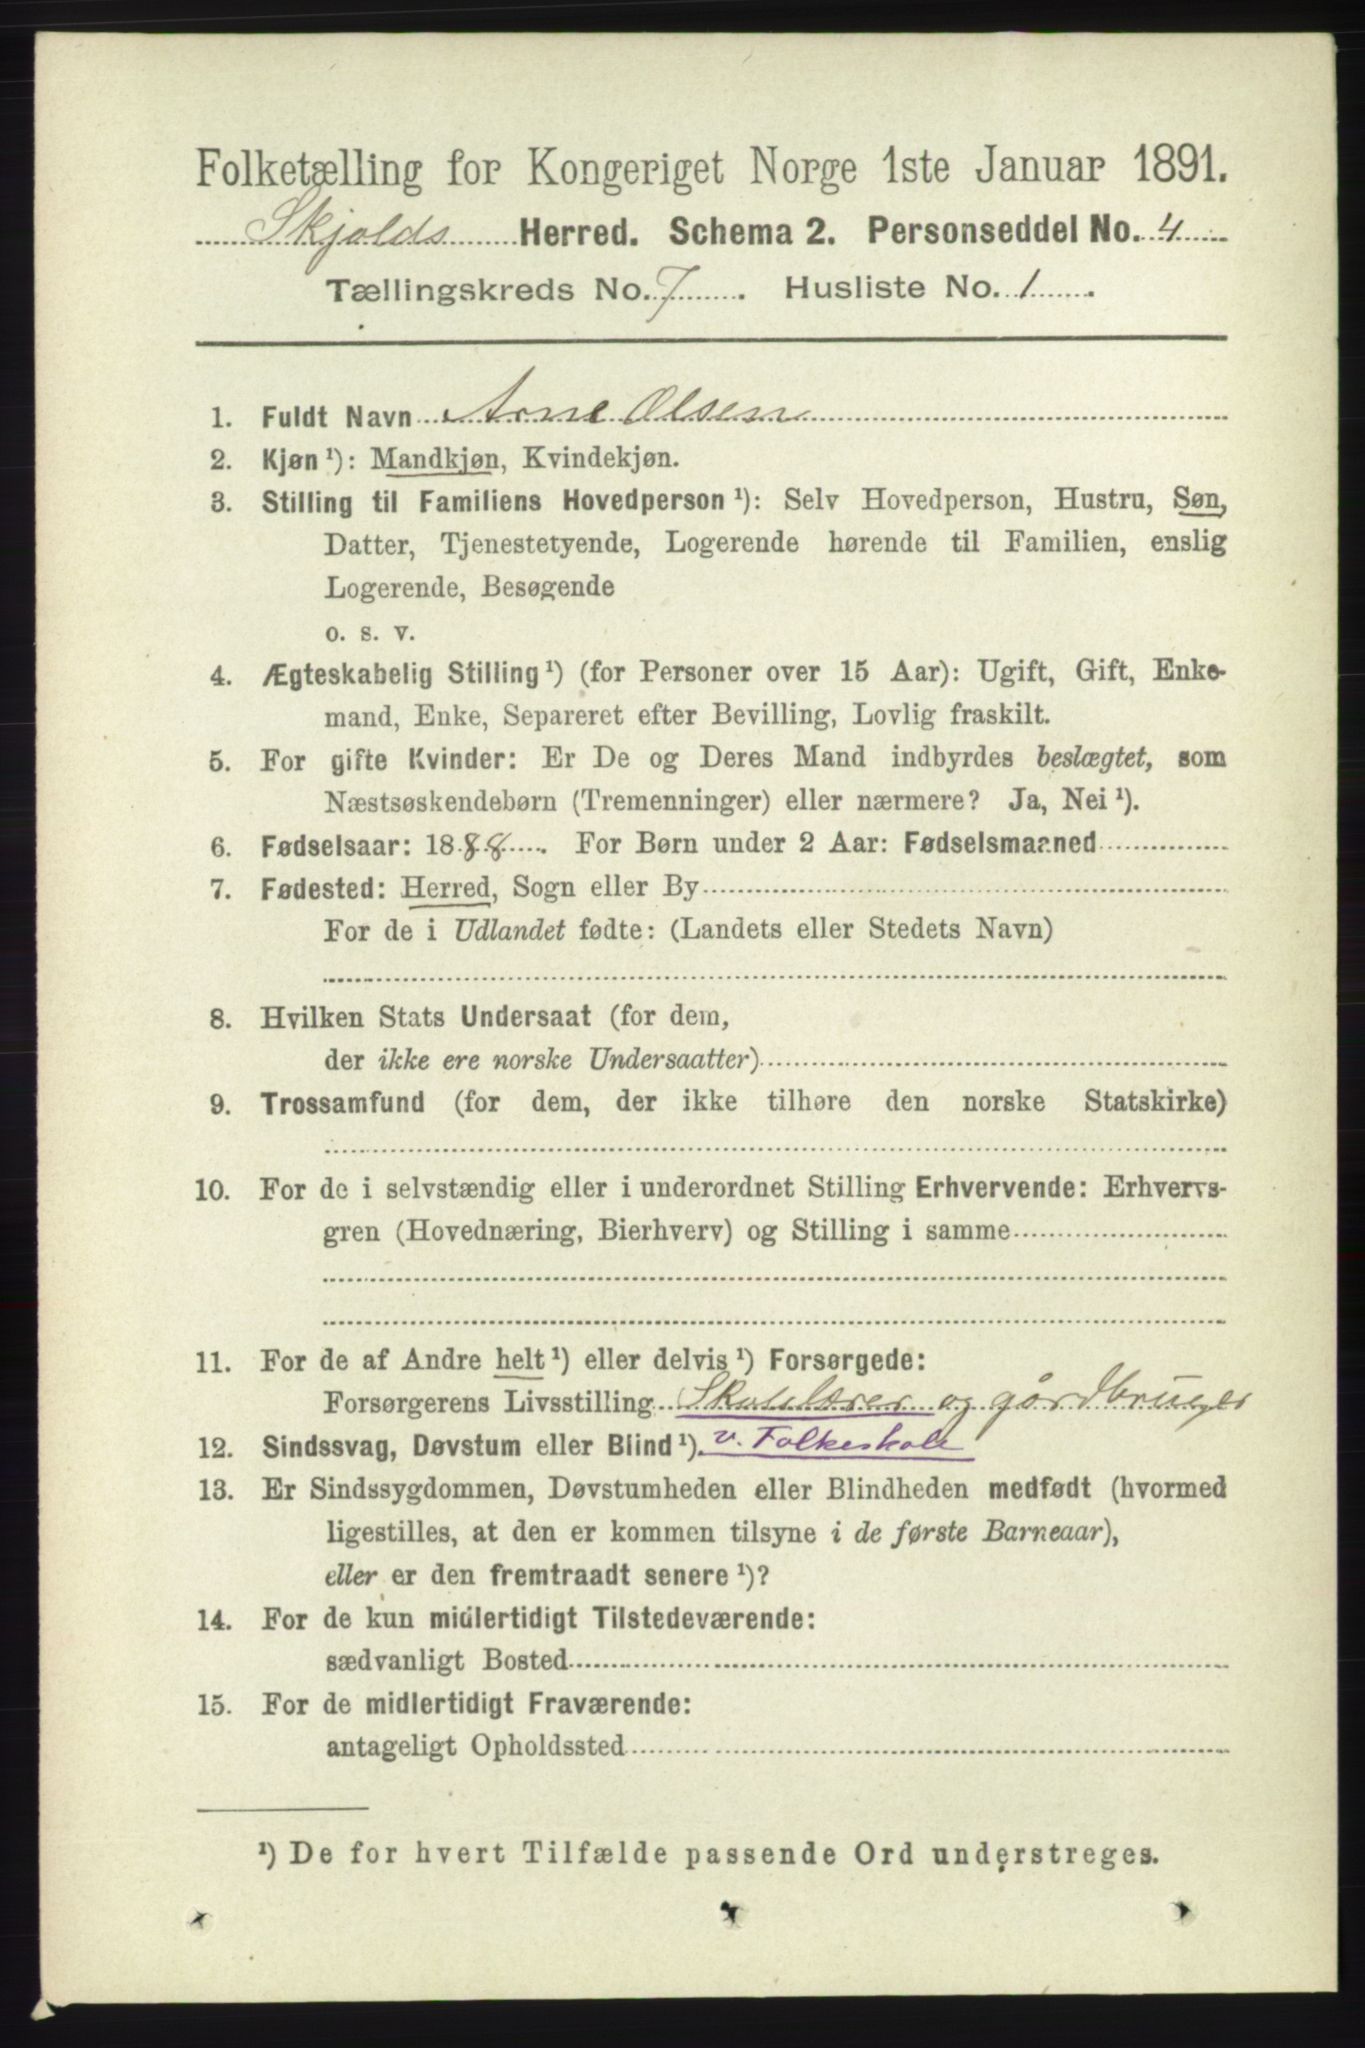 Folketælling for Kongeriget Norge 1ste Januar 1891.
Skjolds Herred. Schema 2. Personseddel No. 4
Tællingskreds No. 7. Husliste No. 1.
1. Fuldt Navn Arne Olsen
2. Kjøn ¹): Mandkjøn, Kvindekjøn.
3. Stilling til Familiens Hovedperson ¹): Selv Hovedperson, Hustru, Søn,
Datter, Tjenestetyende, Logerende hørende til Familien, enslig
Logerende, Besøgende
o. s. v.
4. Ægteskabelig Stilling ¹) (for Personer over 15 Aar): Ugift, Gift, Enke-
mand, Enke, Separeret efter Bevilling, Lovlig fraskilt.
5. For gifte Kvinder: Er De og Deres Mand indbyrdes beslægtet, som
Næstsøskendebørn (Tremenninger) eller nærmere? Ja, Nei ¹).
6. Fødselsaar: 1888. For Børn under 2 Aar: Fødselsmaaned
7. Fødested: Herred, Sogn eller By
For de i Udlandet fødte: (Landets eller Stedets Navn)
8. Hvilken Stats Undersaat (for dem,
der ikke ere norske Undersaatter)
9. Trossamfund (for dem, der ikke tilhøre den norske Statskirke)
10. For de i selvstændig eller i underordnet Stilling Erhvervende: Erhvervs-
gren (Hovednæring, Bierhverv) og Stilling i samme
11. For de af Andre helt ¹) eller delvis ¹) Forsørgede:
Forsørgerens Livsstilling Skolelærer og gårdbruger
12. Sindssvag, Døvstum eller Blind ¹). v. Folkeskole
13. Er Sindssygdommen, Døvstumheden eller Blindheden medfødt (hvormed
ligestilles, at den er kommen tilsyne i de første Barneaar),
eller er den fremtraadt senere ¹)?
14. For de kun midlertidigt Tilstedeværende:
sædvanligt Bosted
15. For de midlertidigt Fraværende:
antageligt Opholdssted
¹) De for hvert Tilfælde passende Ord understreges.